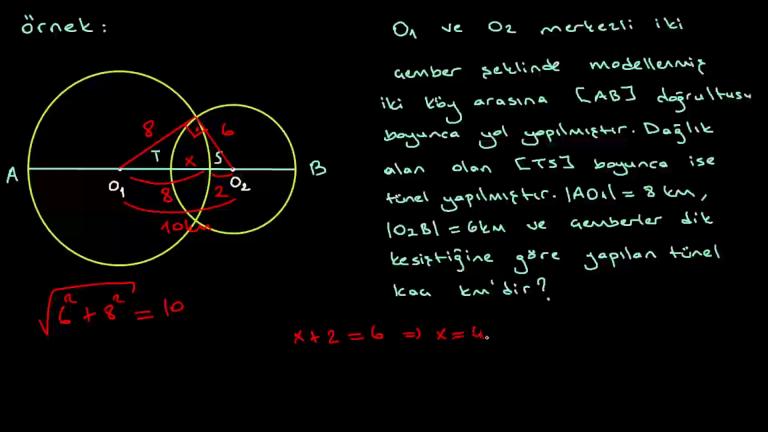 örnek:
O1 ve O2 merkezli iki
çember şeklinde modellenmiş
iki köy arasına [AB] doğrultusu
boyunca yol yapılmıştır. Dağlık
alan olan [TS] boyunca ise
tünel yapılmıştır. |AO1| = 8 km,
|O2B| = 6km ve çemberler dik
kesiştiğine göre yapılan tünel
kaç km'dir?
8 6
T x S
A O1 O2 B
8 2
10km
√6² + 8² = 10
x + 2 = 6 ⇒ x = 4.